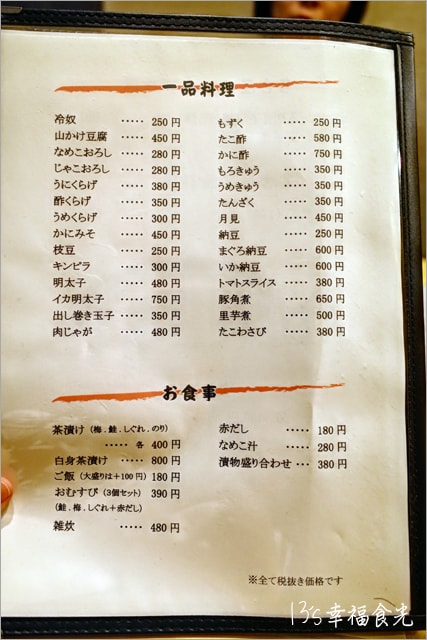 一品料理
冷奴 ····· 250円
山かけ豆腐 ····· 450円
なめこおろし ····· 280円
じゃこおろし ····· 280円
うにくらげ ····· 380円
酢くらげ ····· 350円
うめくらげ ····· 300円
かにみそ ····· 450円
枝豆 ····· 250円
キンピラ ····· 300円
明太子 ····· 480円
イカ明太子 ····· 750円
出し巻き玉子 ····· 350円
肉じゃが ····· 480円
もずく ····· 250円
たこ酢 ····· 580円
かに酢 ····· 750円
もろきゅう ····· 350円
うめきゅう ····· 350円
たんざく ····· 350円
月見 ····· 450円
納豆 ····· 250円
まぐろ納豆 ····· 600円
いか納豆 ····· 600円
トマトスライス ····· 380円
豚角煮 ····· 650円
里芋煮 ····· 500円
たこわさび ····· 380円
お食事
茶漬け（梅．鮭．しぐれ．のり）
····· 各 400円
白身茶漬け ····· 800円
ご飯（大盛りは＋100円）180円
おむすび（3個セット）390円
（鮭．梅．しぐれ＋赤だし）
雑炊 ····· 480円
赤だし ····· 180円
なめこ汁 ····· 280円
漬物盛り合わせ ··· 380円
※全て税抜き価格です
13's幸福食光